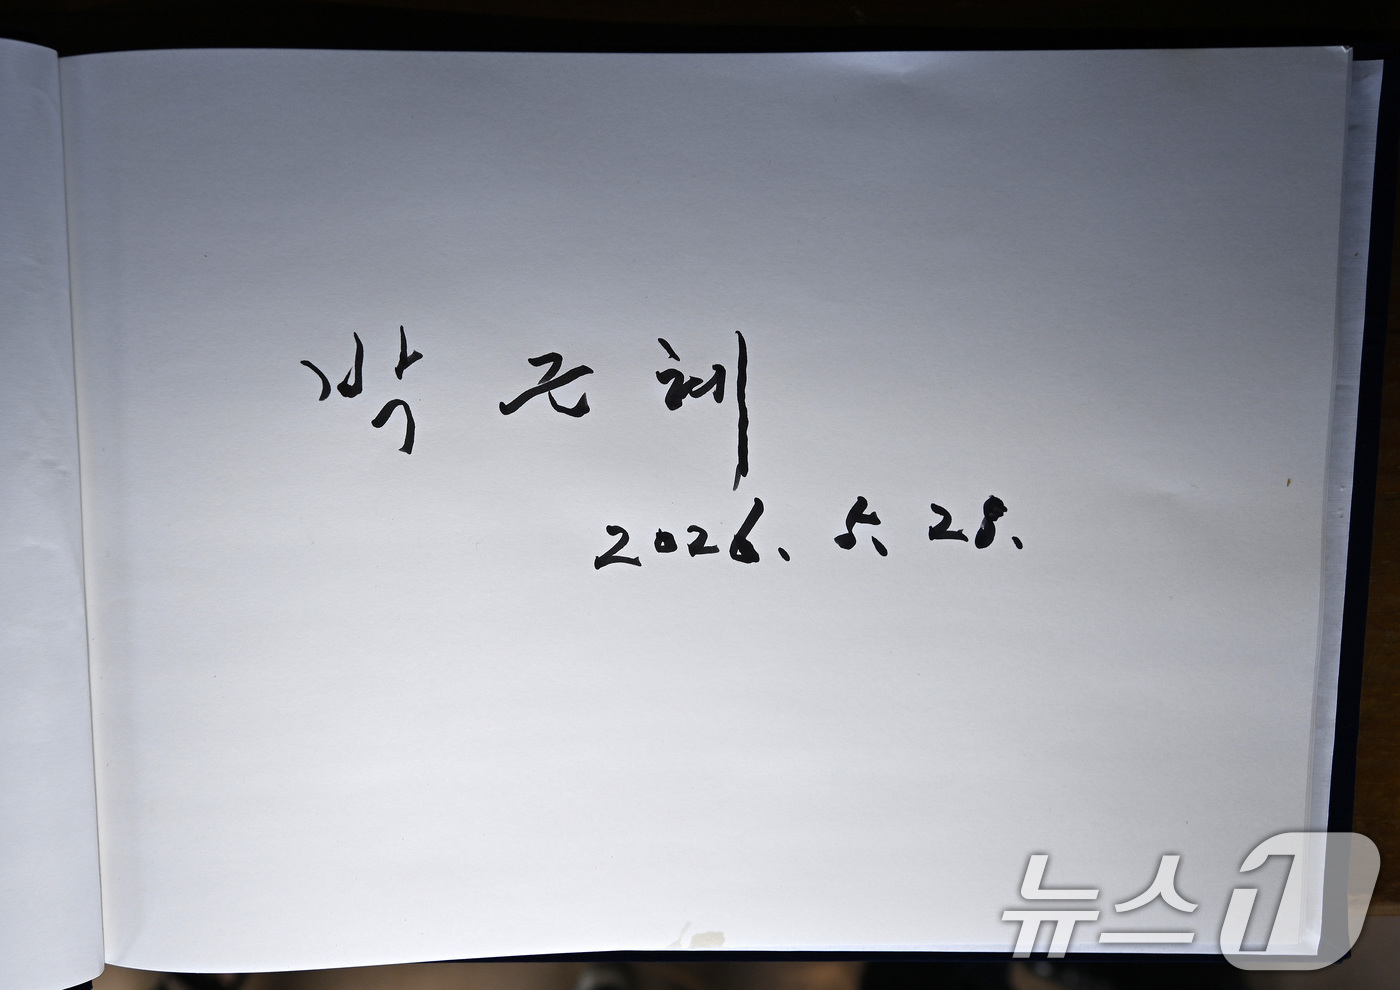 박 근 혜
2026. 5. 28.
뉴스1